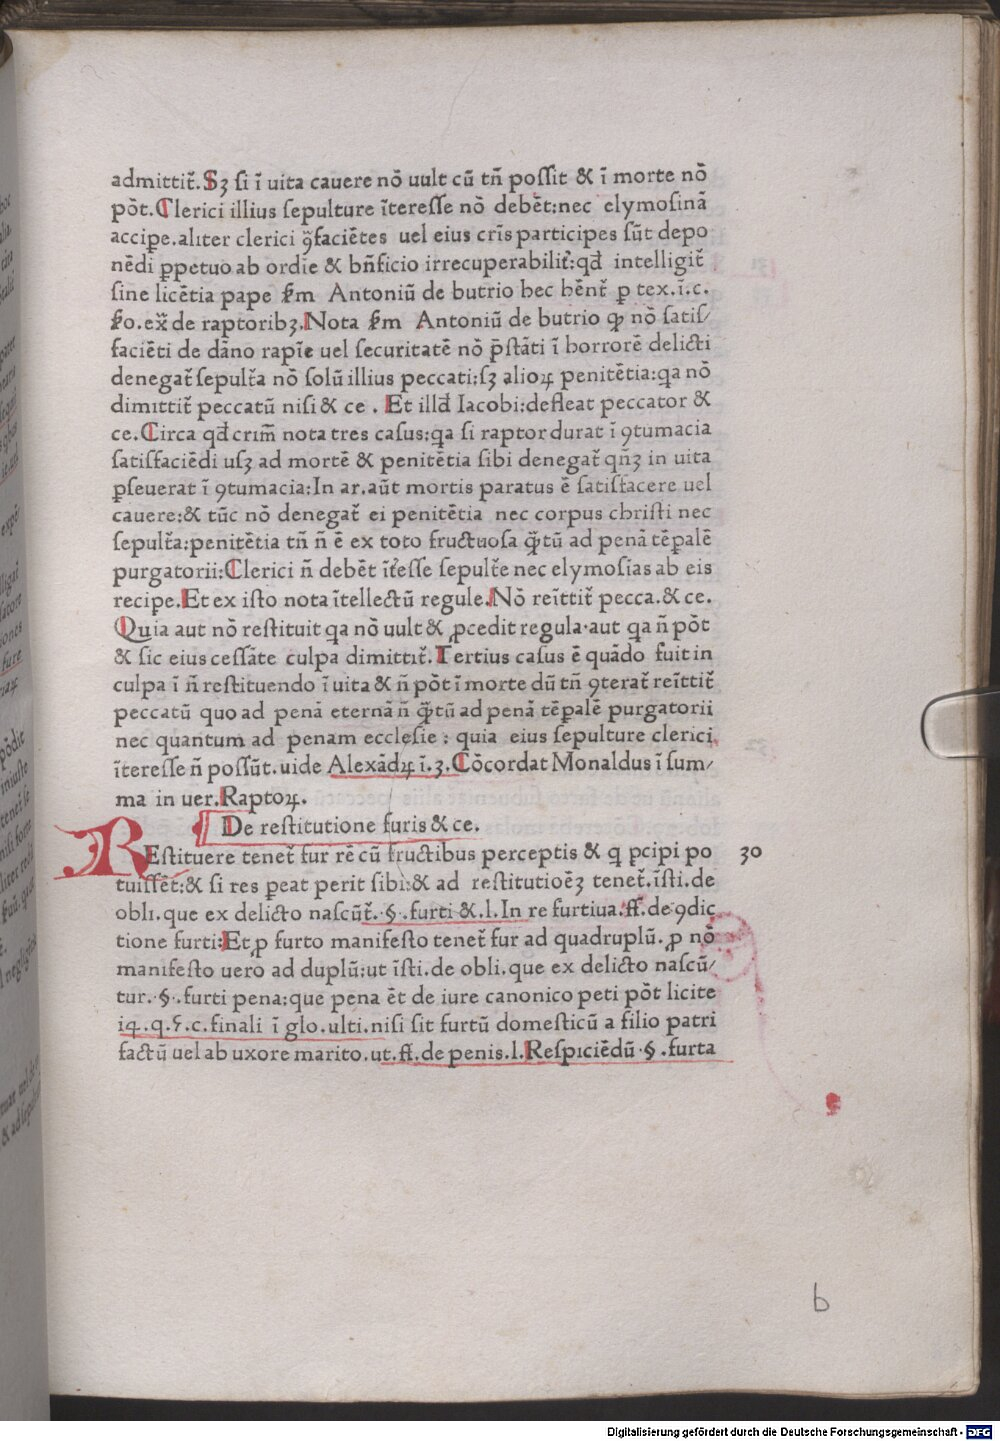 admittit̃. Sꝫ ſi ĩ uita cauere nõ uult cũ tñ poſſit & ĩ morte nõ
põt. Clerici illius ſepulture ĩtereſſe nõ debẽt: nec elymoſinã
accipe. aliter clerici ꝯ̃faciẽtes uel eius crĩs participes ſũt depo
nẽdi ꝑpetuo ab ordie & bñficio irrecuperabilit̃: qd̃ intelligit̃
ſine licẽtia pape ẜm Antoniũ de butrio hec hẽnt̃ ꝑ tex. ĩ. c.
ẜo. ex̃ de raptoribꝫ. Nota ẜm Antoniũ de butrio ꝙ nõ ſatiſ/
faciẽti de dãno rapĩe uel ſecuritatẽ nõ p̃ſtãti ĩ horrorẽ delicti
denegat̃ ſepult̃a nõ ſolũ illius peccati: ſꝫ alioꝝ penitẽtia: qa nõ
dimittit̃ peccatũ niſi & ce . Et illd̃ Iacobi: defleat peccator &
ce. Circa qd̃ crim̃ nota tres caſus: qa ſi raptor durat ĩ ꝯtumacia
ſatiſfaciẽdi uſꝫ ad mortẽ & penitẽtia ſibi denegat̃ qñꝫ in uita
ꝑſeuerat ĩ ꝯtumacia: In ar. aũt mortis paratus ẽ ſatiſfacere uel
cauere: & tũc nõ denegat̃ ei penitẽtia nec corpus chriſti nec
ſepult̃a: penitẽtia tñ ñ ẽ ex toto fructuoſa q̃tũ ad penã tẽpalẽ
purgatorii: Clerici ñ debẽt ĩt̃eſſe ſepult̃e nec elymoſias ab eis
recipe. Et ex iſto nota ĩtellectũ regule. Nõ reĩttit̃ pecca. & ce.
Quia aut nõ reſtituit qa nõ uult & ꝓcedit regula · aut qa ñ põt
& ſic eius ceſſãte culpa dimittit̃. Tertius caſus ẽ quãdo fuit in
culpa ĩ ñ reſtituendo ĩ uita & ñ põt ĩ morte dũ tñ ꝯterat̃ reĩttit̃
peccatũ quo ad penã eternã ñ q̃tũ ad penã tẽpalẽ purgatorii
nec quantum ad penam eccleſie : quia eius ſepulture clerici
ĩtereſſe ñ poſſũt. uide Alexãdꝝ ĩ. 3. Cõcordat Monaldus ĩ ſum/
ma in uer. Raptoꝝ.
De reſtitutione furis & ce.
REſtituere tenet̃ fur rẽ cũ fructibus perceptis & q ꝑcipi po 30
tuiſſẽt: & ſi res ꝑeat perit ſibi: & ad reſtitutioẽꝫ tenet̃. ĩſti. de
obli. que ex delicto naſcũt̃. · § · . furti & . l. In re furtiua. ff. de ꝯdic
tione furti: Et ꝓ furto manifeſto tenet̃ fur ad quadruplũ. ꝓ nõ
manifeſto uero ad duplũ: ut ĩſti. de obli. que ex delicto naſcũ/
tur. · § · . furti pena: que pena ẽt de iure canonico peti põt licite
i4. q. 5. c. finali ĩ glo. ulti. niſi ſit furtũ domeſticũ a filio patri
factũ uel ab uxore marito. ut. ff. de penis. l. Reſpiciẽdũ · § . furta
b
Digitalisierung gefördert durch die Deutsche Forschungsgemeinschaft - DFG